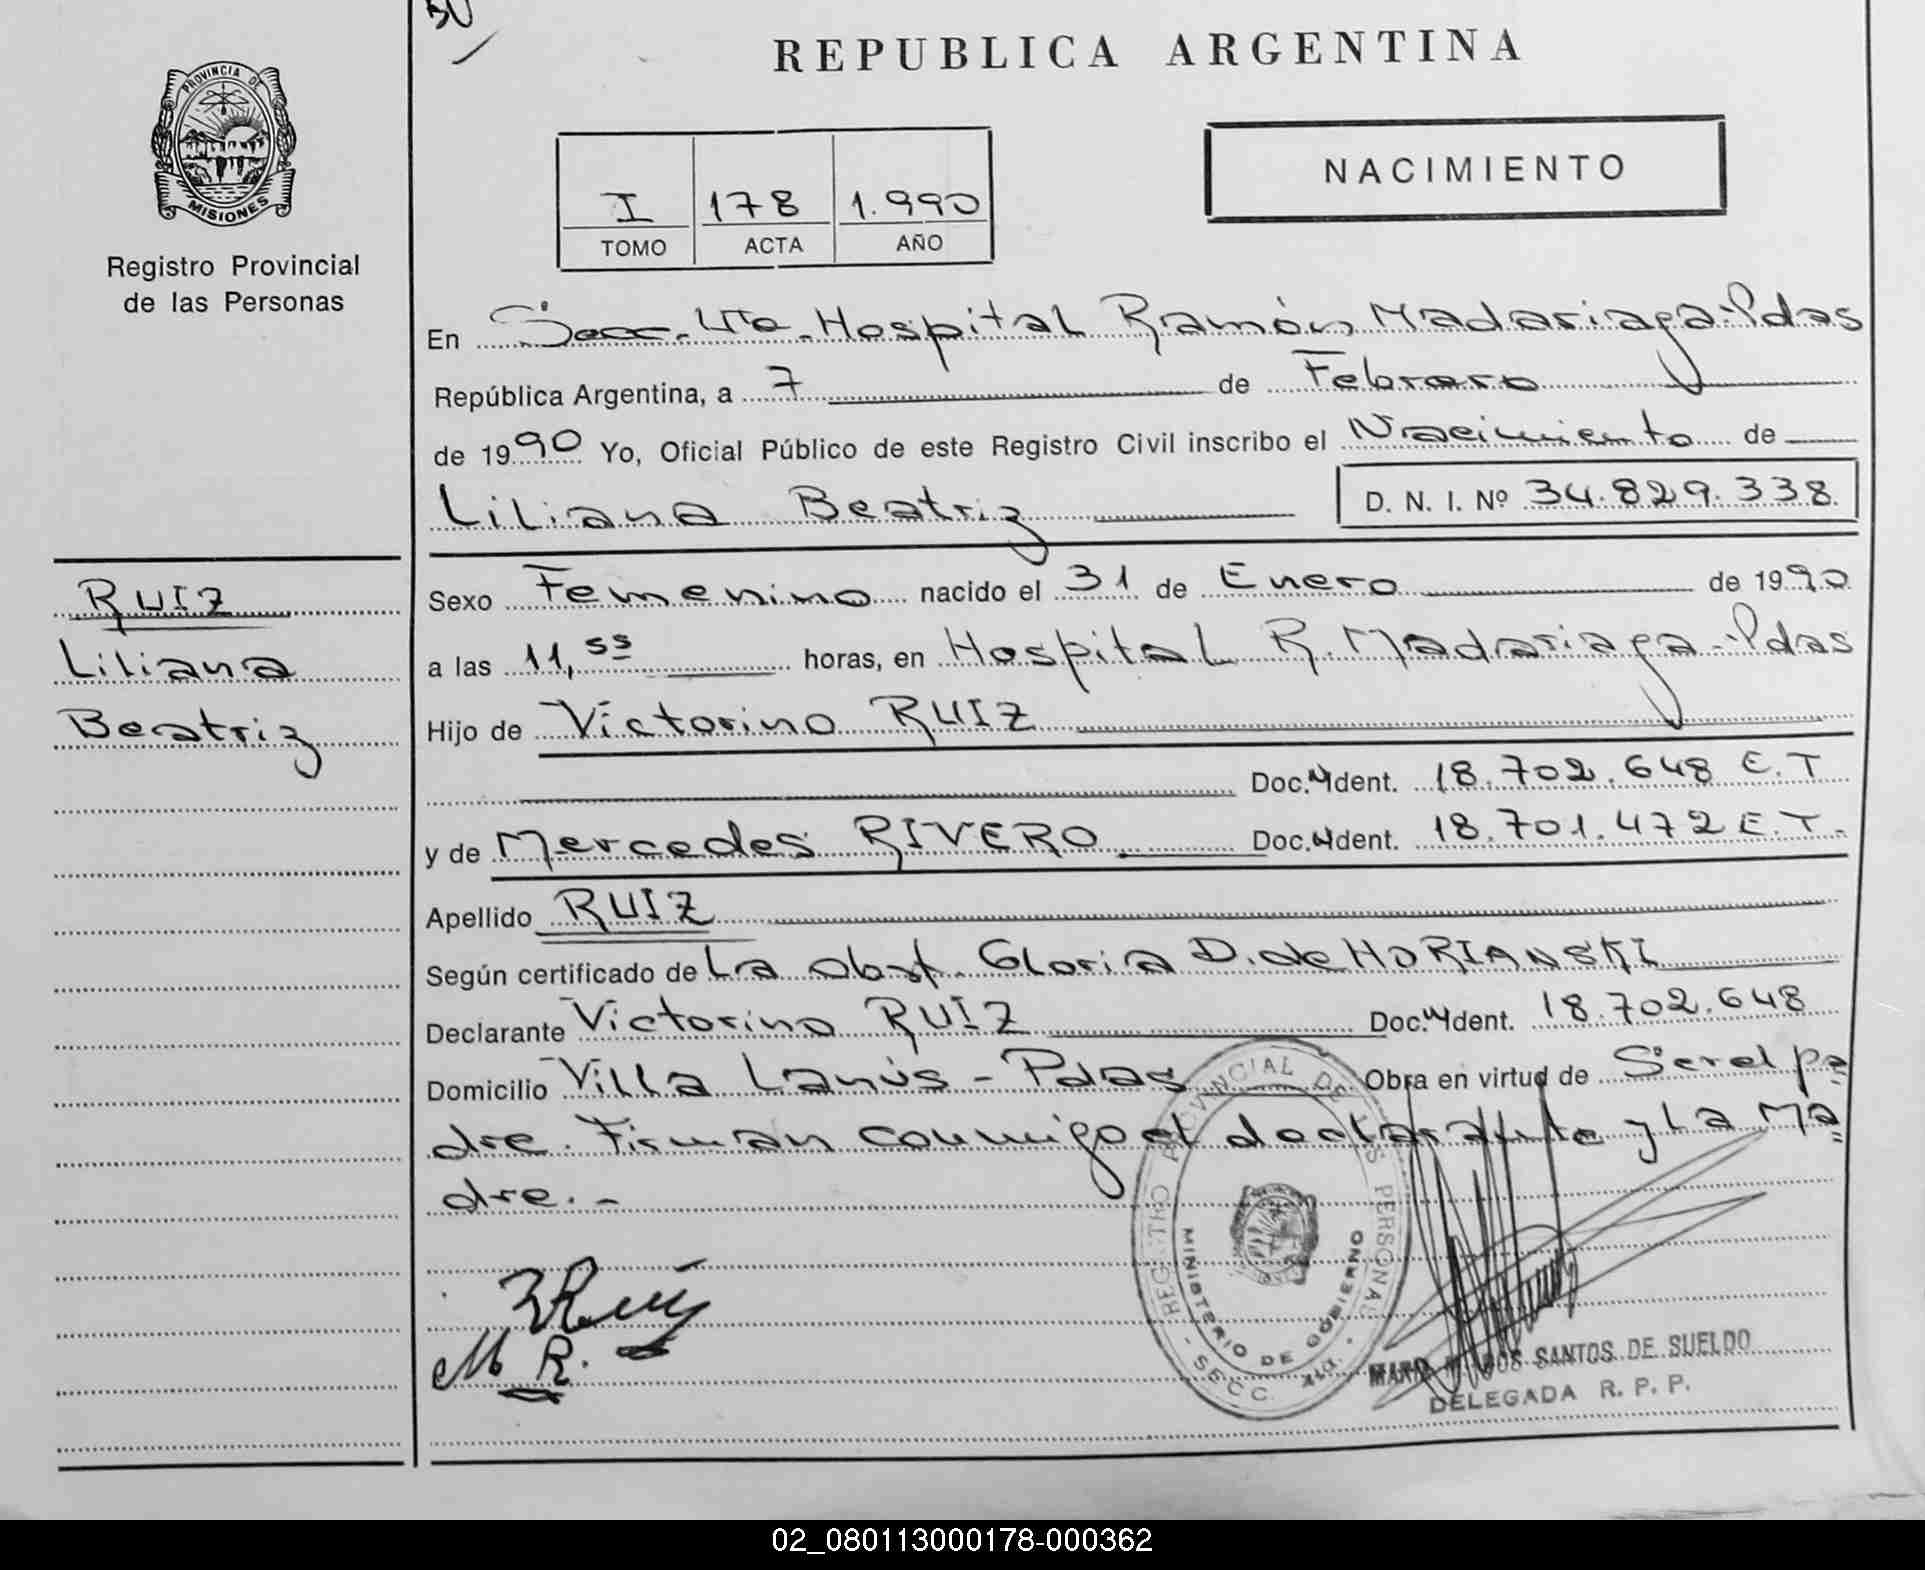 PROVINCIA DE
MISIONES
Registro Provincial
de las Personas
RUIZ
Liliana
Beatriz
REPUBLICA ARGENTINA
NACIMIENTO
I 178 1.990
TOMO ACTA AÑO
En Secc. 4ta. Hospital Ramón Madariaga-Pdas
República Argentina, a 7 de Febrero
de 1990 Yo, Oficial Público de este Registro Civil inscribo el Nacimiento de
Liliana Beatriz D. N. I. Nº 34.829.338
Sexo Femenino nacido el 31 de Enero de 1990
a las 11,55 horas, en Hospital R. Madariaga-Pdas
Hijo de Victorino RUIZ
Doc. Ident. 18.702.648 E.T
y de Mercedes RIVERO Doc. Ident. 18.701.472 E.T.
Apellido RUIZ
Según certificado de La obst. Gloria D. de HORIANSKI
Declarante Victorino RUIZ Doc. Ident. 18.702.648
Domicilio Villa Lanús - Pdas Obra en virtud de Ser el pa
dre. Firman conmigo el declarante y La Ma
dre.-
REGISTRO PROVINCIAL DE LAS PERSONAS
MINISTERIO DE GOBIERNO
- SECC. 4ta. -
V Ruiz
M R.
DOS SANTOS DE SUELDO
DELEGADA R. P. P.
02_080113000178-000362